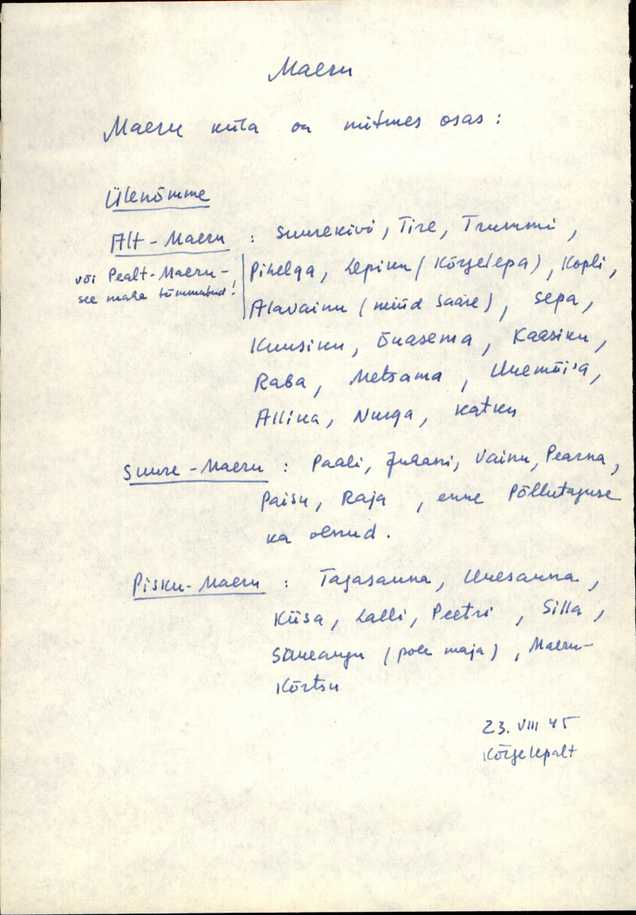 Maeru
Maeru küla on mitmes osas:
Ülenõmme
Alt-Maeru : Suurekivi, Tire, Trummi,
või Pealt-Maeru-
see maha tõmmatud!
Pihelga, Lepiku (Kõrjelepa), Kopli,
Alavainu (nüüd Saare), Sepa,
Kuusiku, Õnasema, Kaasiku,
Raba, Metsama, Uuemõisa,
Allika, Nurga, Katku
Suure-Maeru : Paali, Juhani, Vainu, Pearna,
Paisu, Raja, enne Põllutaguse
ka olnud.
Pisku-Maeru : Tagasauna, Uuesauna,
Kiisa, Lalli, Peetri, Silla,
(pole maja), Maeru-
Kõrtsu
23. VIII 45
Kõrjelepalt